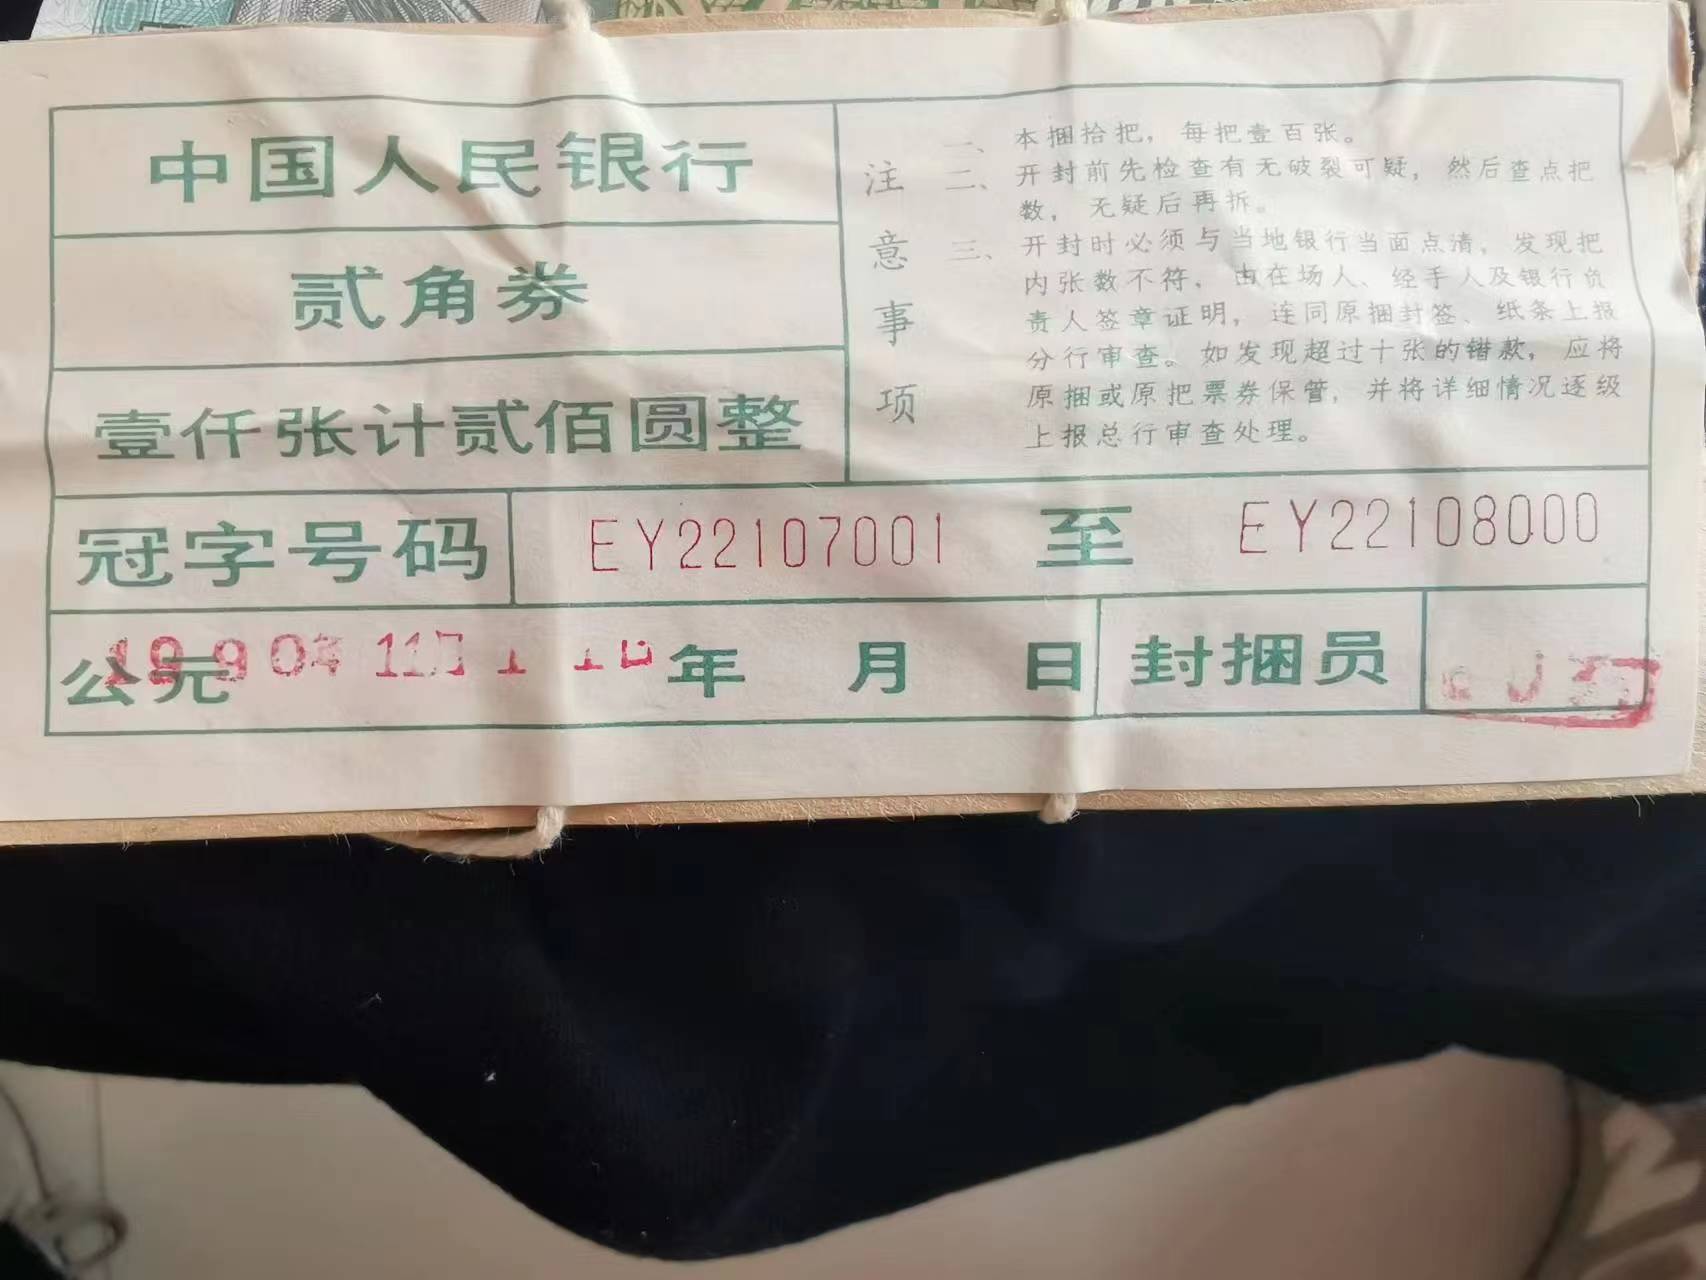 中国人民银行
贰角券
壹仟张计贰佰圆整
注意事项
一、本捆拾把，每把壹百张。
二、开封前先检查有无破裂可疑，然后查点把
数，无疑后再拆。
三、开封时必须与当地银行当面点清，发现把
内张数不符，由在场人、经手人及银行负
责人签章证明，连同原捆封签、纸条上报
分行审查。如发现超过十张的错款，应将
原捆或原把票券保管，并将详细情况逐级
上报总行审查处理。
冠字号码 EY22107001 至 EY22108000
公元 年 月 日 封捆员
1990年 11月